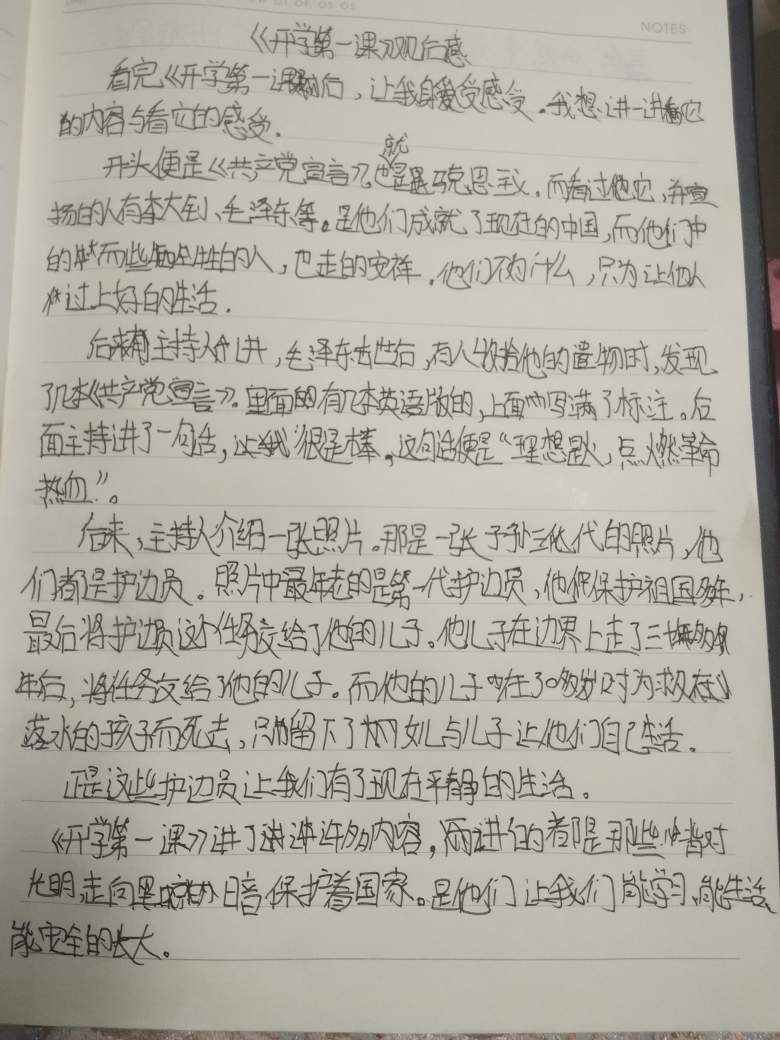 NOTES
《开学第一课》观后感
看完《开学第一课》后，让我自受感受。我想讲一讲看它
的内容与看它的感受。
开头便是《共产党宣言》，也就是马克思主义。而看过它，并宣
扬的人有李大钊、毛泽东等。是他们成就了现在的中国，而他们中
的而些牺牲的人，也走的安祥。他们不为什么，只为让他人
过上好的生活。
后来有主持人讲，毛泽东去世后，有人收拾他的遗物时，发现
了几本《共产党宣言》。里面的有几本英语版的，上面写满了标注。后
面主持讲了一句话，让我很是棒，这句话便是“理想是火，点燃革命
热血”。
后来，主持人介绍一张照片。那是一张子孙三代的照片，他
们都是护边员。照片中最年老的是第一代护边员，他保护祖国多年，
最后将护边员这个任务交给了他的儿子。他儿子在边界上走了三十多
年后，将任务交给了他的儿子。而他的儿子在30多岁时为救在
落水的孩子而死去，只留下了女儿与儿子让他们自己生活。
正是这些护边员让我们有了现在平静的生活。
《开学第一课》讲了许多内容，而讲的都是那些背对
光明，走向黑暗保护着国家。是他们让我们能学习、能生活、
能安全的长大。